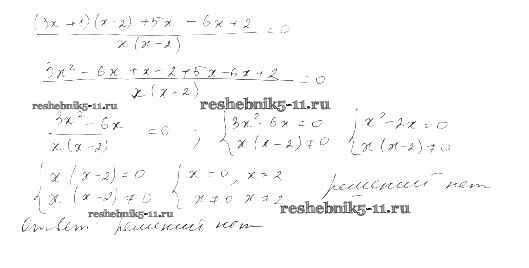 (3x+1)(x-2)+5x-6x+2 / x(x-2) = 0
3x²-6x+x-2+5x-6x+2 / x(x-2) = 0
reshebnik5-11.ru reshebnik5-11.ru
3x²-6x / x(x-2) = 0 ; { 3x²-6x=0 { x²-2x=0
x(x-2)≠0 x(x-2)≠0
{ x(x-2)=0 { x=0, x=2 решений нет
x(x-2)≠0 x≠0 x≠2
reshebnik5-11.ru reshebnik5-11.ru
Ответ решений нет